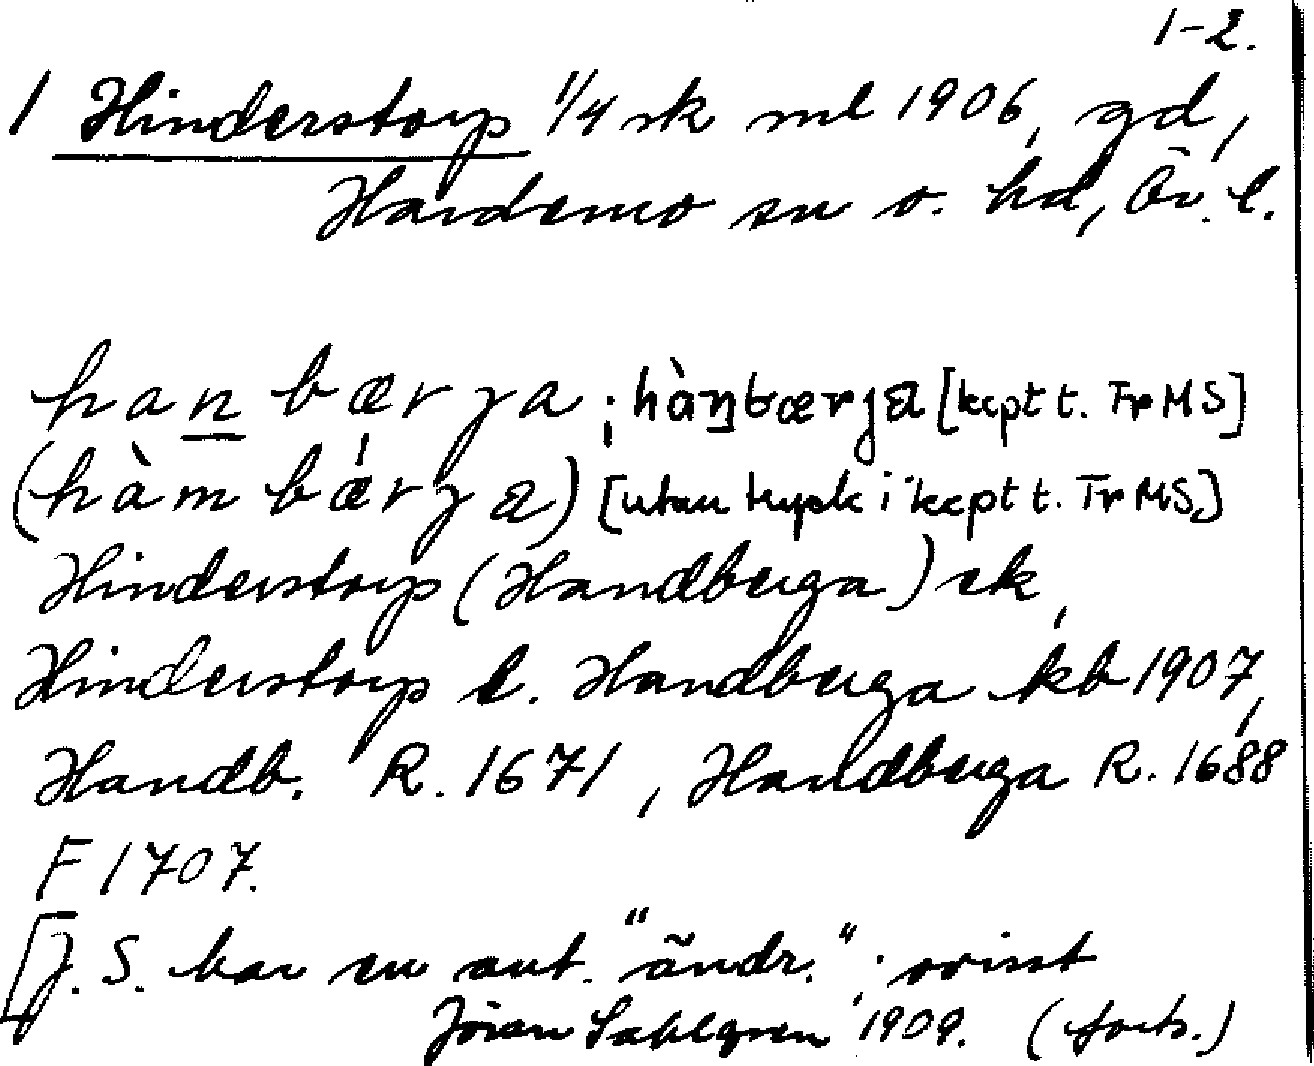 1-2.
1 Hinderstorp 1/4 sk ml 1906, gd,
Hardemo sn o. hd, Ör. l.
han bærja; hàŋbærja [kcpt t. Tr MS]
(hàm bærja) [utan tryck i kcpt t. Tr MS]
Hinderstorp (Handberga) ek,
Hinderstorp l. Handberga kb 1907,
Handb. R. 1671, Handberga R. 1688
F 1707.
[J. S. har en ant. "ändr."; ovisst
Jöran Sahlgren 1909. (forts.)